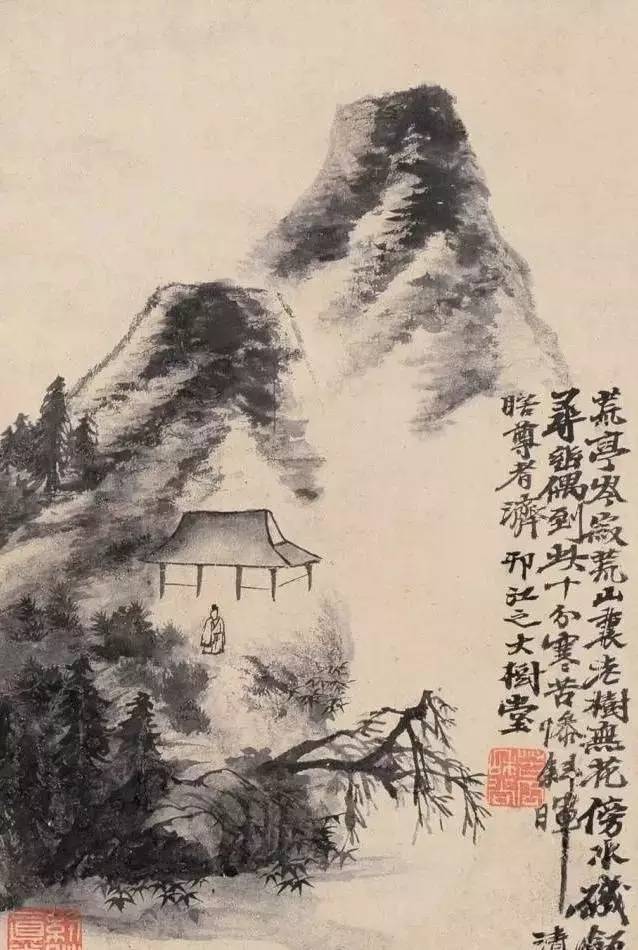 荒亭岑寂荒山裏老樹無花傍水磯
尋偶到此十分寒苦斜暉 清
瞎尊者濟 邗江之大樹堂